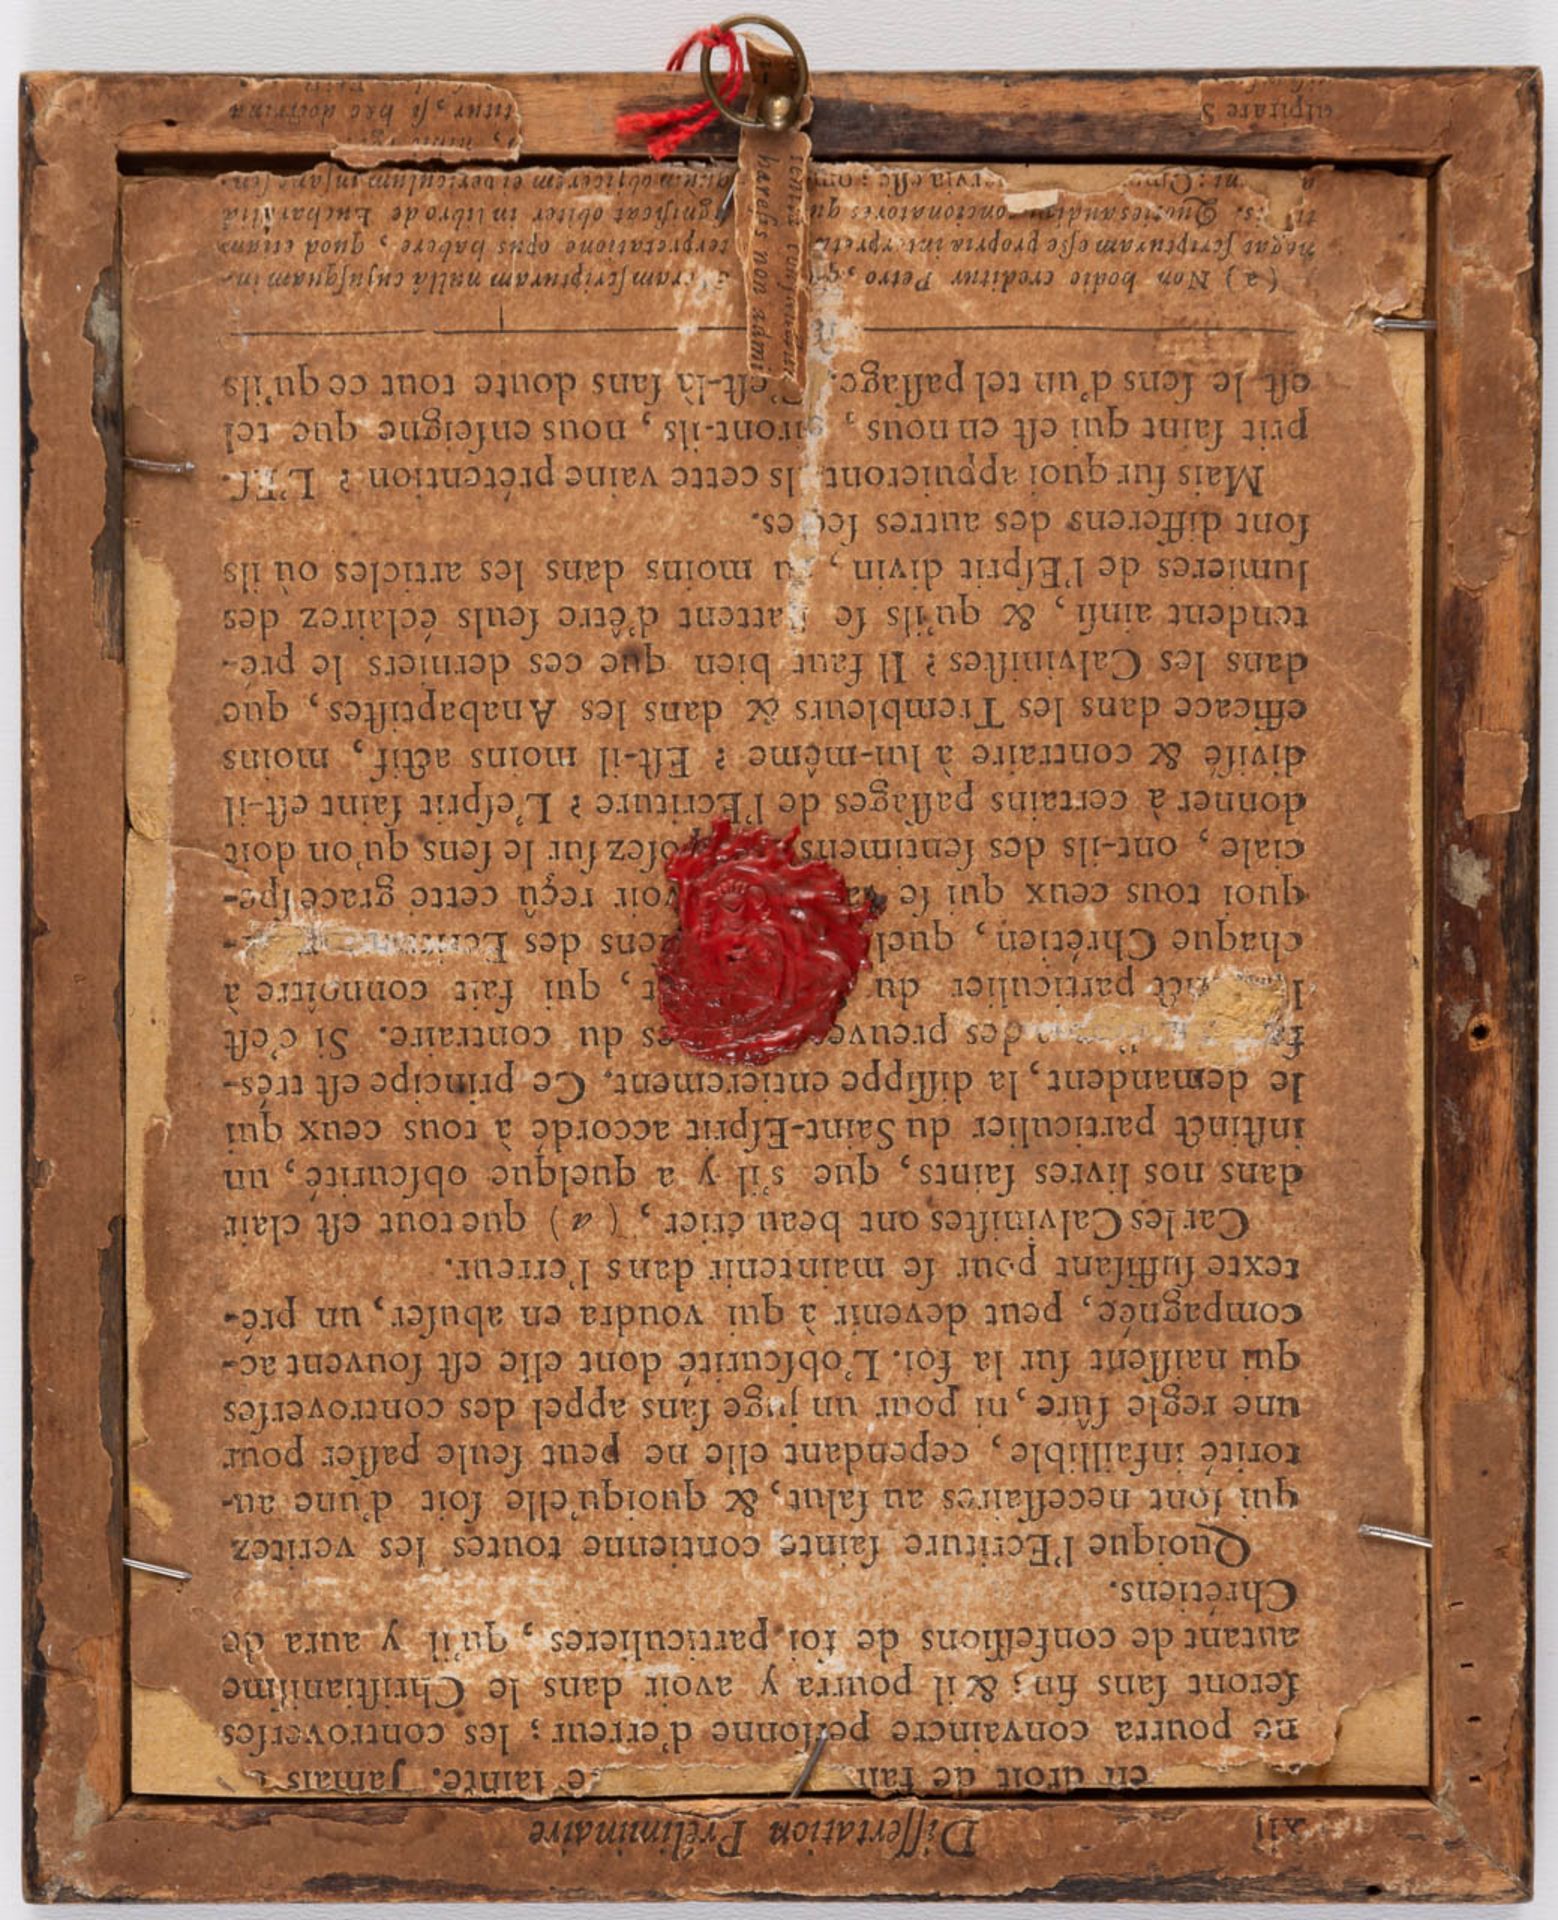 xij Dissertation Préliminaire
en droit de fai te sainte. jamais
ne pourra convaincre personne d'erreur ; les controverses
seront sans fin ; & il pourra y avoir dans le Christianisme
autant de confessions de foi particulieres , qu'il y aura de
Chrétiens.
Quoique l'Ecriture sainte contienne toutes les veritez
qui sont necessaires au salut, & quoiqu'elle soit d'une au-
torité infaillible, cependant elle ne peut seule passer pour
une regle sûre, ni pour un juge sans appel des controverses
qui naissent sur la foi. L'obscurité dont elle est souvent ac-
compagnée, peut devenir à qui voudra en abuser, un pré-
texte suffisant pour se maintenir dans l'erreur.
Car les Calvinistes ont beau crier, (a) que tout est clair
dans nos livres saints, que s'il y a quelque obscurité, un
instinct particulier du Saint-Esprit accordé à tous ceux qui
le demandent, la dissippe entierement. Ce principe est très-
des preuve es du contraire. Si c'est
particulier du t, qui fait connoître à
chaque Chrétien, quel ens des
quoi tous ceux qui se va voir reçû cette grace spe-
ciale, ont-ils des sentimens posez sur le sens qu'on doit
donner à certains passages de l'Ecriture ? L'esprit saint est-il
divisé & contraire à lui-même ? Est-il moins actif, moins
efficace dans les Trembleurs & dans les Anabaptistes, que
dans les Calvinistes ? Il faut bien que ces derniers le pré-
tendent ainsi, & qu'ils se flattent d'être seuls éclairez des
lumieres de l'Esprit divin, au moins dans les articles où ils
sont differens des autres sectes.
Mais sur quoi appuieront-ils cette vaine prétention ? L'Es-
prit saint qui est en nous, diront-ils, nous enseigne que tel
est le sens d'un tel passage. C'est-là sans doute tout ce qu'ils
(a) Non hodie creditur Petro, scripturam nullâ cujusquam in-
negat scripturam esse propriæ interpreta terpretatione opus habere, quod etiam
Quoties audin concionatores qu significat obiter in libro de Eucharistiâ
quùm objicerem ei periculum
titur, si hæc doctrina
hæresis non admi